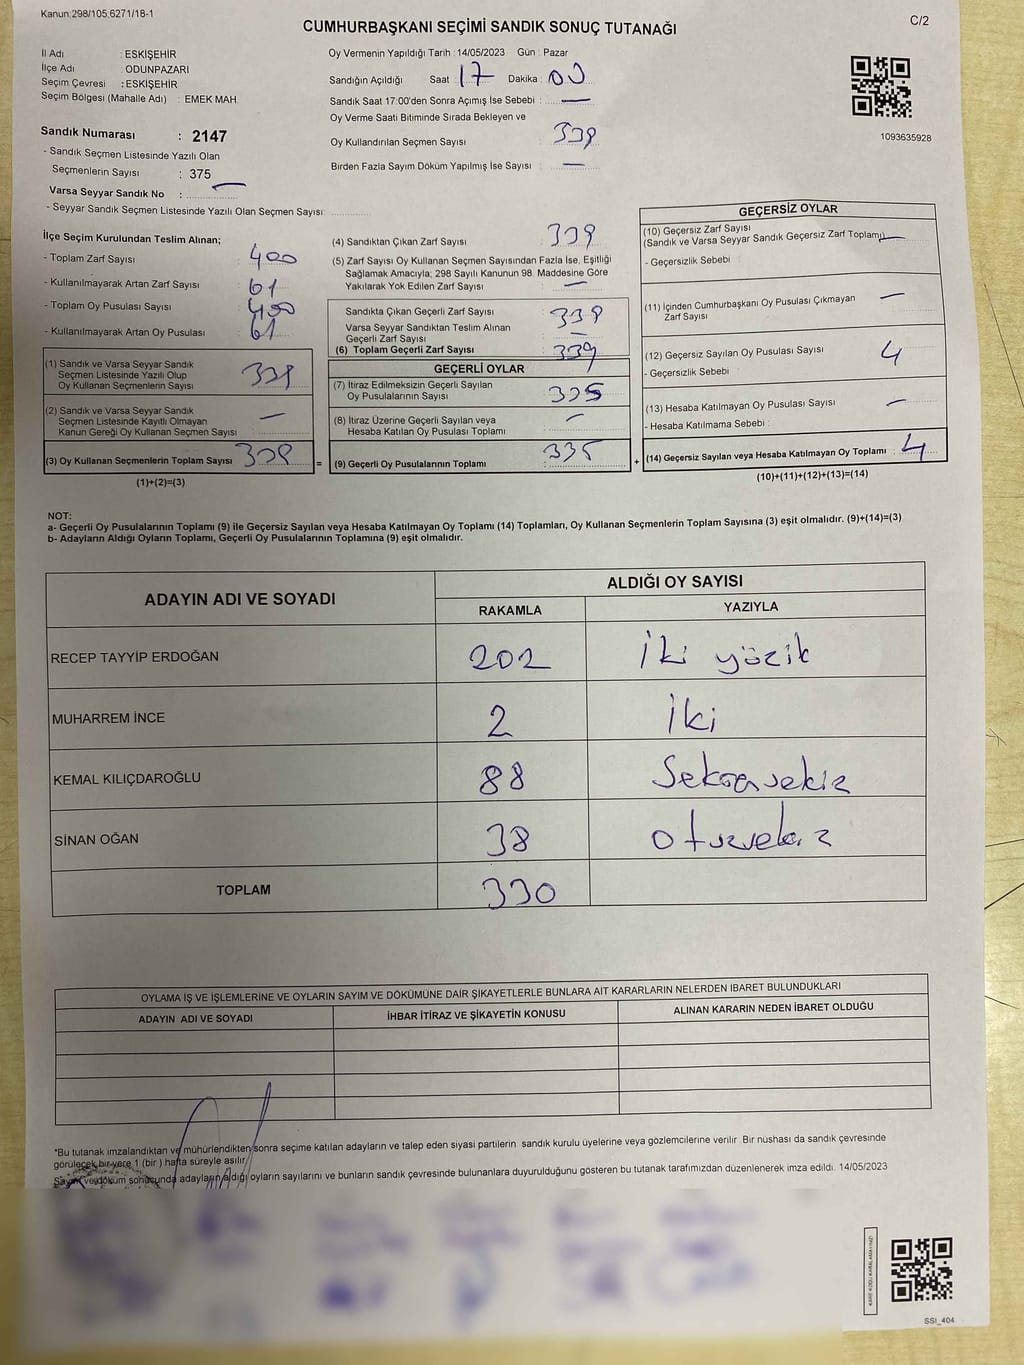 Kanun:298/105;6271/18-1
C/2
CUMHURBAŞKANI SEÇİMİ SANDIK SONUÇ TUTANAĞI
İl Adı : ESKİŞEHİR
İlçe Adı : ODUNPAZARI
Seçim Çevresi : ESKİŞEHİR
Seçim Bölgesi (Mahalle Adı) : EMEK MAH.
Sandık Numarası : 2147
- Sandık Seçmen Listesinde Yazılı Olan
Seçmenlerin Sayısı : 375
Varsa Seyyar Sandık No : —
- Seyyar Sandık Seçmen Listesinde Yazılı Olan Seçmen Sayısı:
Oy Vermenin Yapıldığı Tarih : 14/05/2023 Gün : Pazar
Sandığın Açıldığı Saat : 17 Dakika : 00
Sandık Saat 17:00'den Sonra Açımış İse Sebebi : —
Oy Verme Saati Bitiminde Sırada Bekleyen ve
Oy Kullandırılan Seçmen Sayısı : 339
Birden Fazla Sayım Döküm Yapılmış İse Sayısı : —
1093635928
İlçe Seçim Kurulundan Teslim Alınan;
- Toplam Zarf Sayısı : 400
- Kullanılmayarak Artan Zarf Sayısı : 61
- Toplam Oy Pusulası Sayısı : 400
- Kullanılmayarak Artan Oy Pusulası : 61
(1) Sandık ve Varsa Seyyar Sandık
Seçmen Listesinde Yazılı Olup
Oy Kullanan Seçmenlerin Sayısı : 339
(2) Sandık ve Varsa Seyyar Sandık
Seçmen Listesinde Kayıtlı Olmayan
Kanun Gereği Oy Kullanan Seçmen Sayısı : —
(3) Oy Kullanan Seçmenlerin Toplam Sayısı : 339
(1)+(2)=(3)
=
(4) Sandıktan Çıkan Zarf Sayısı : 339
(5) Zarf Sayısı Oy Kullanan Seçmen Sayısından Fazla İse, Eşitliği
Sağlamak Amacıyla; 298 Sayılı Kanunun 98. Maddesine Göre
Yakılarak Yok Edilen Zarf Sayısı : —
Sandıkta Çıkan Geçerli Zarf Sayısı : 339
Varsa Seyyar Sandıktan Teslim Alınan
Geçerli Zarf Sayısı : —
(6) Toplam Geçerli Zarf Sayısı : 339
GEÇERLİ OYLAR
(7) İtiraz Edilmeksizin Geçerli Sayılan
Oy Pusulalarının Sayısı : 335
(8) İtiraz Üzerine Geçerli Sayılan veya
Hesaba Katılan Oy Pusulası Toplamı : —
(9) Geçerli Oy Pusulalarının Toplamı : 335
+
GEÇERSİZ OYLAR
(10) Geçersiz Zarf Sayısı
(Sandık ve Varsa Seyyar Sandık Geçersiz Zarf Toplamı) —
- Geçersizlik Sebebi :
(11) İçinden Cumhurbaşkanı Oy Pusulası Çıkmayan
Zarf Sayısı : —
(12) Geçersiz Sayılan Oy Pusulası Sayısı : 4
- Geçersizlik Sebebi :
(13) Hesaba Katılmayan Oy Pusulası Sayısı : —
- Hesaba Katılmama Sebebi :
(14) Geçersiz Sayılan veya Hesaba Katılmayan Oy Toplamı : 4
(10)+(11)+(12)+(13)=(14)
NOT:
a- Geçerli Oy Pusulalarının Toplamı (9) ile Geçersiz Sayılan veya Hesaba Katılmayan Oy Toplamı (14) Toplamları, Oy Kullanan Seçmenlerin Toplam Sayısına (3) eşit olmalıdır. (9)+(14)=(3)
b- Adayların Aldığı Oyların Toplamı, Geçerli Oy Pusulalarının Toplamına (9) eşit olmalıdır.
ADAYIN ADI VE SOYADI
ALDIĞI OY SAYISI
RAKAMLA YAZIYLA
RECEP TAYYİP ERDOĞAN 202 İki yüzik
MUHARREM İNCE 2 İki
KEMAL KILIÇDAROĞLU 88
SİNAN OĞAN 38
TOPLAM 330
OYLAMA İŞ VE İŞLEMLERİNE VE OYLARIN SAYIM VE DÖKÜMÜNE DAİR ŞİKAYETLERLE BUNLARA AİT KARARLARIN NELERDEN İBARET BULUNDUKLARI
ADAYIN ADI VE SOYADI İHBAR İTİRAZ VE ŞİKAYETİN KONUSU ALINAN KARARIN NEDEN İBARET OLDUĞU
*Bu tutanak imzalandıktan ve mühürlendikten sonra seçime katılan adayların ve talep eden siyasi partilerin sandık kurulu üyelerine veya gözlemcilerine verilir. Bir nüshası da sandık çevresinde
görülecek bir yere 1 (bir ) hafta süreyle asılır.
Sayım ve döküm sonucunda adayların aldığı oyların sayılarını ve bunların sandık çevresinde bulunanlara duyurulduğunu gösteren bu tutanak tarafımızdan düzenlenerek imza edildi. 14/05/2023
SSI_404